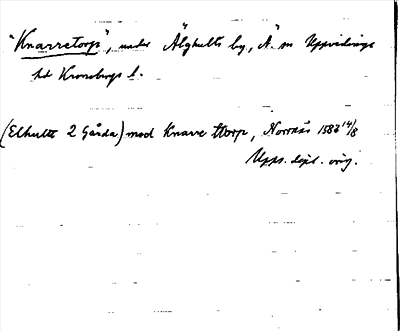 "Knarretorp", under Älghults by, Ä. sn Uppvidinge
hd Kronobergs l.
(Elhulte 2 Gårda) med Knare ttorp, Norrnäs 1583 14/8
Upps. dipl. orig.